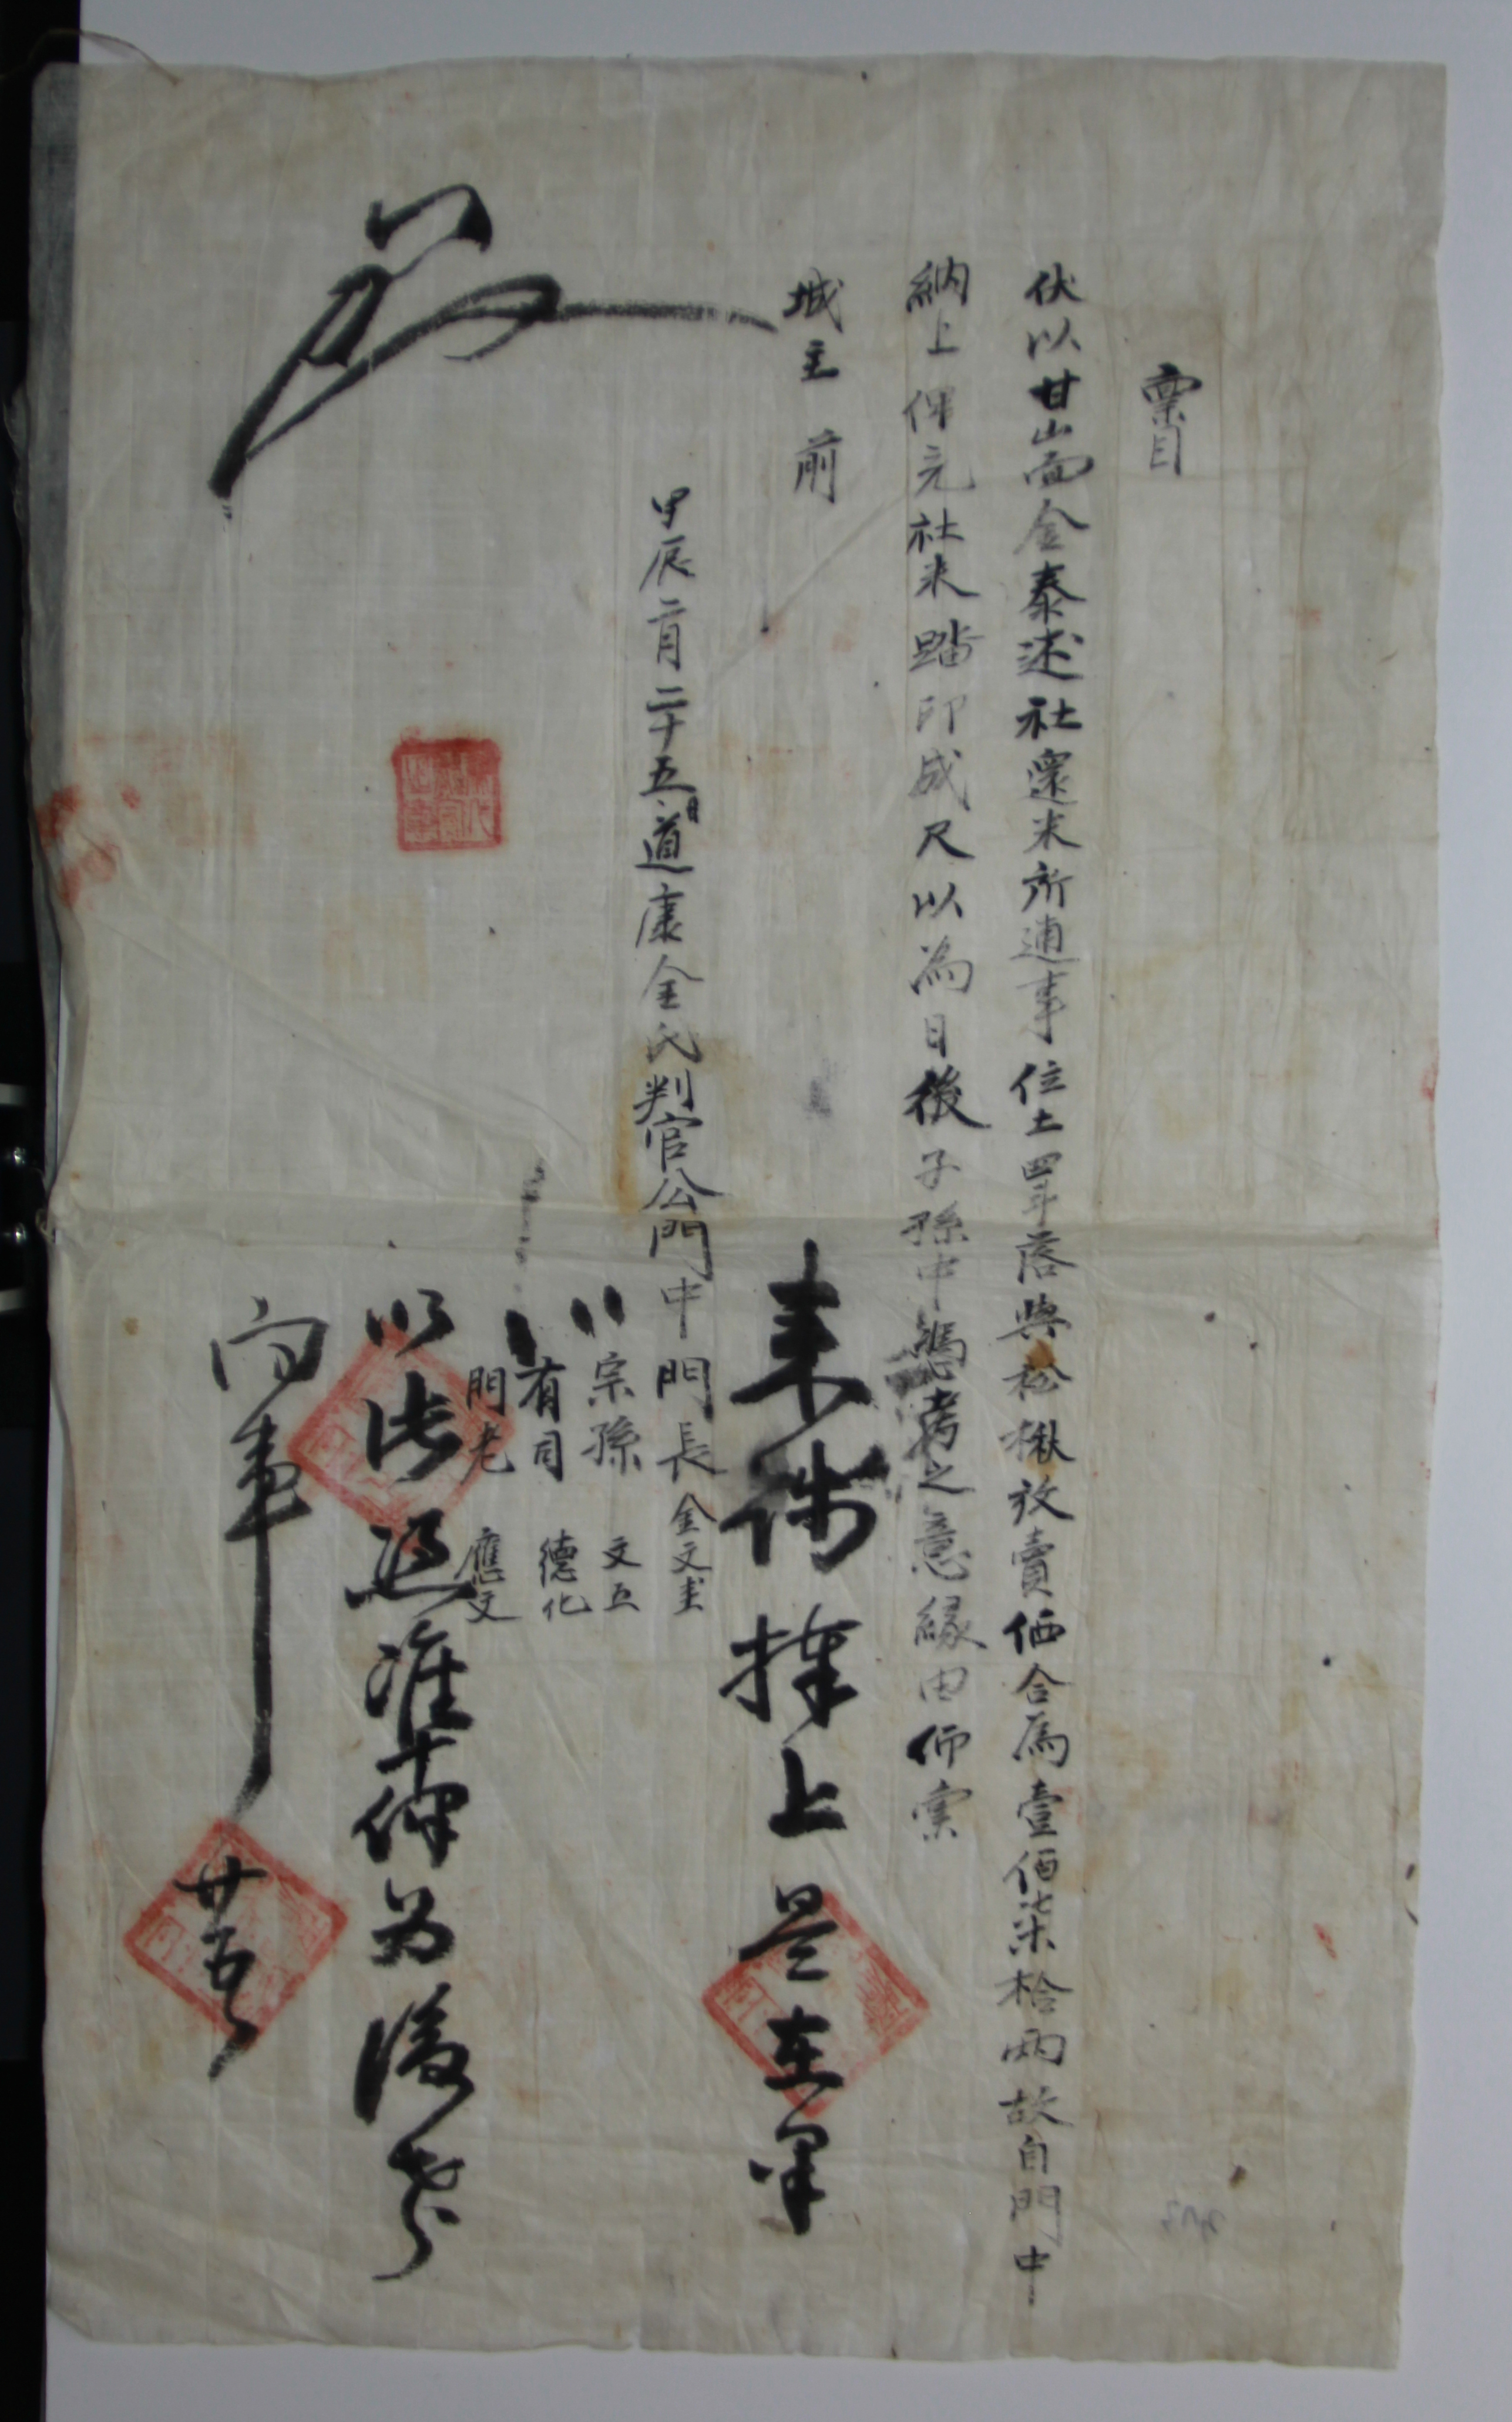 稟目
伏以甘山面金泰述社還米所逋事位土四斗落與松楸放賣価合爲壹佰柒拾兩故自門中
納上俾完社米踏印成尺以爲日後子孫中憑考之意緣由仰稟
城主 前
甲辰二月二十五日道康金氏判官公門中 門長 金文圭
宗孫 文五
有司 德化
門老 應文
來錢捧上是在果
以此題準俾爲後考
向事
廿五